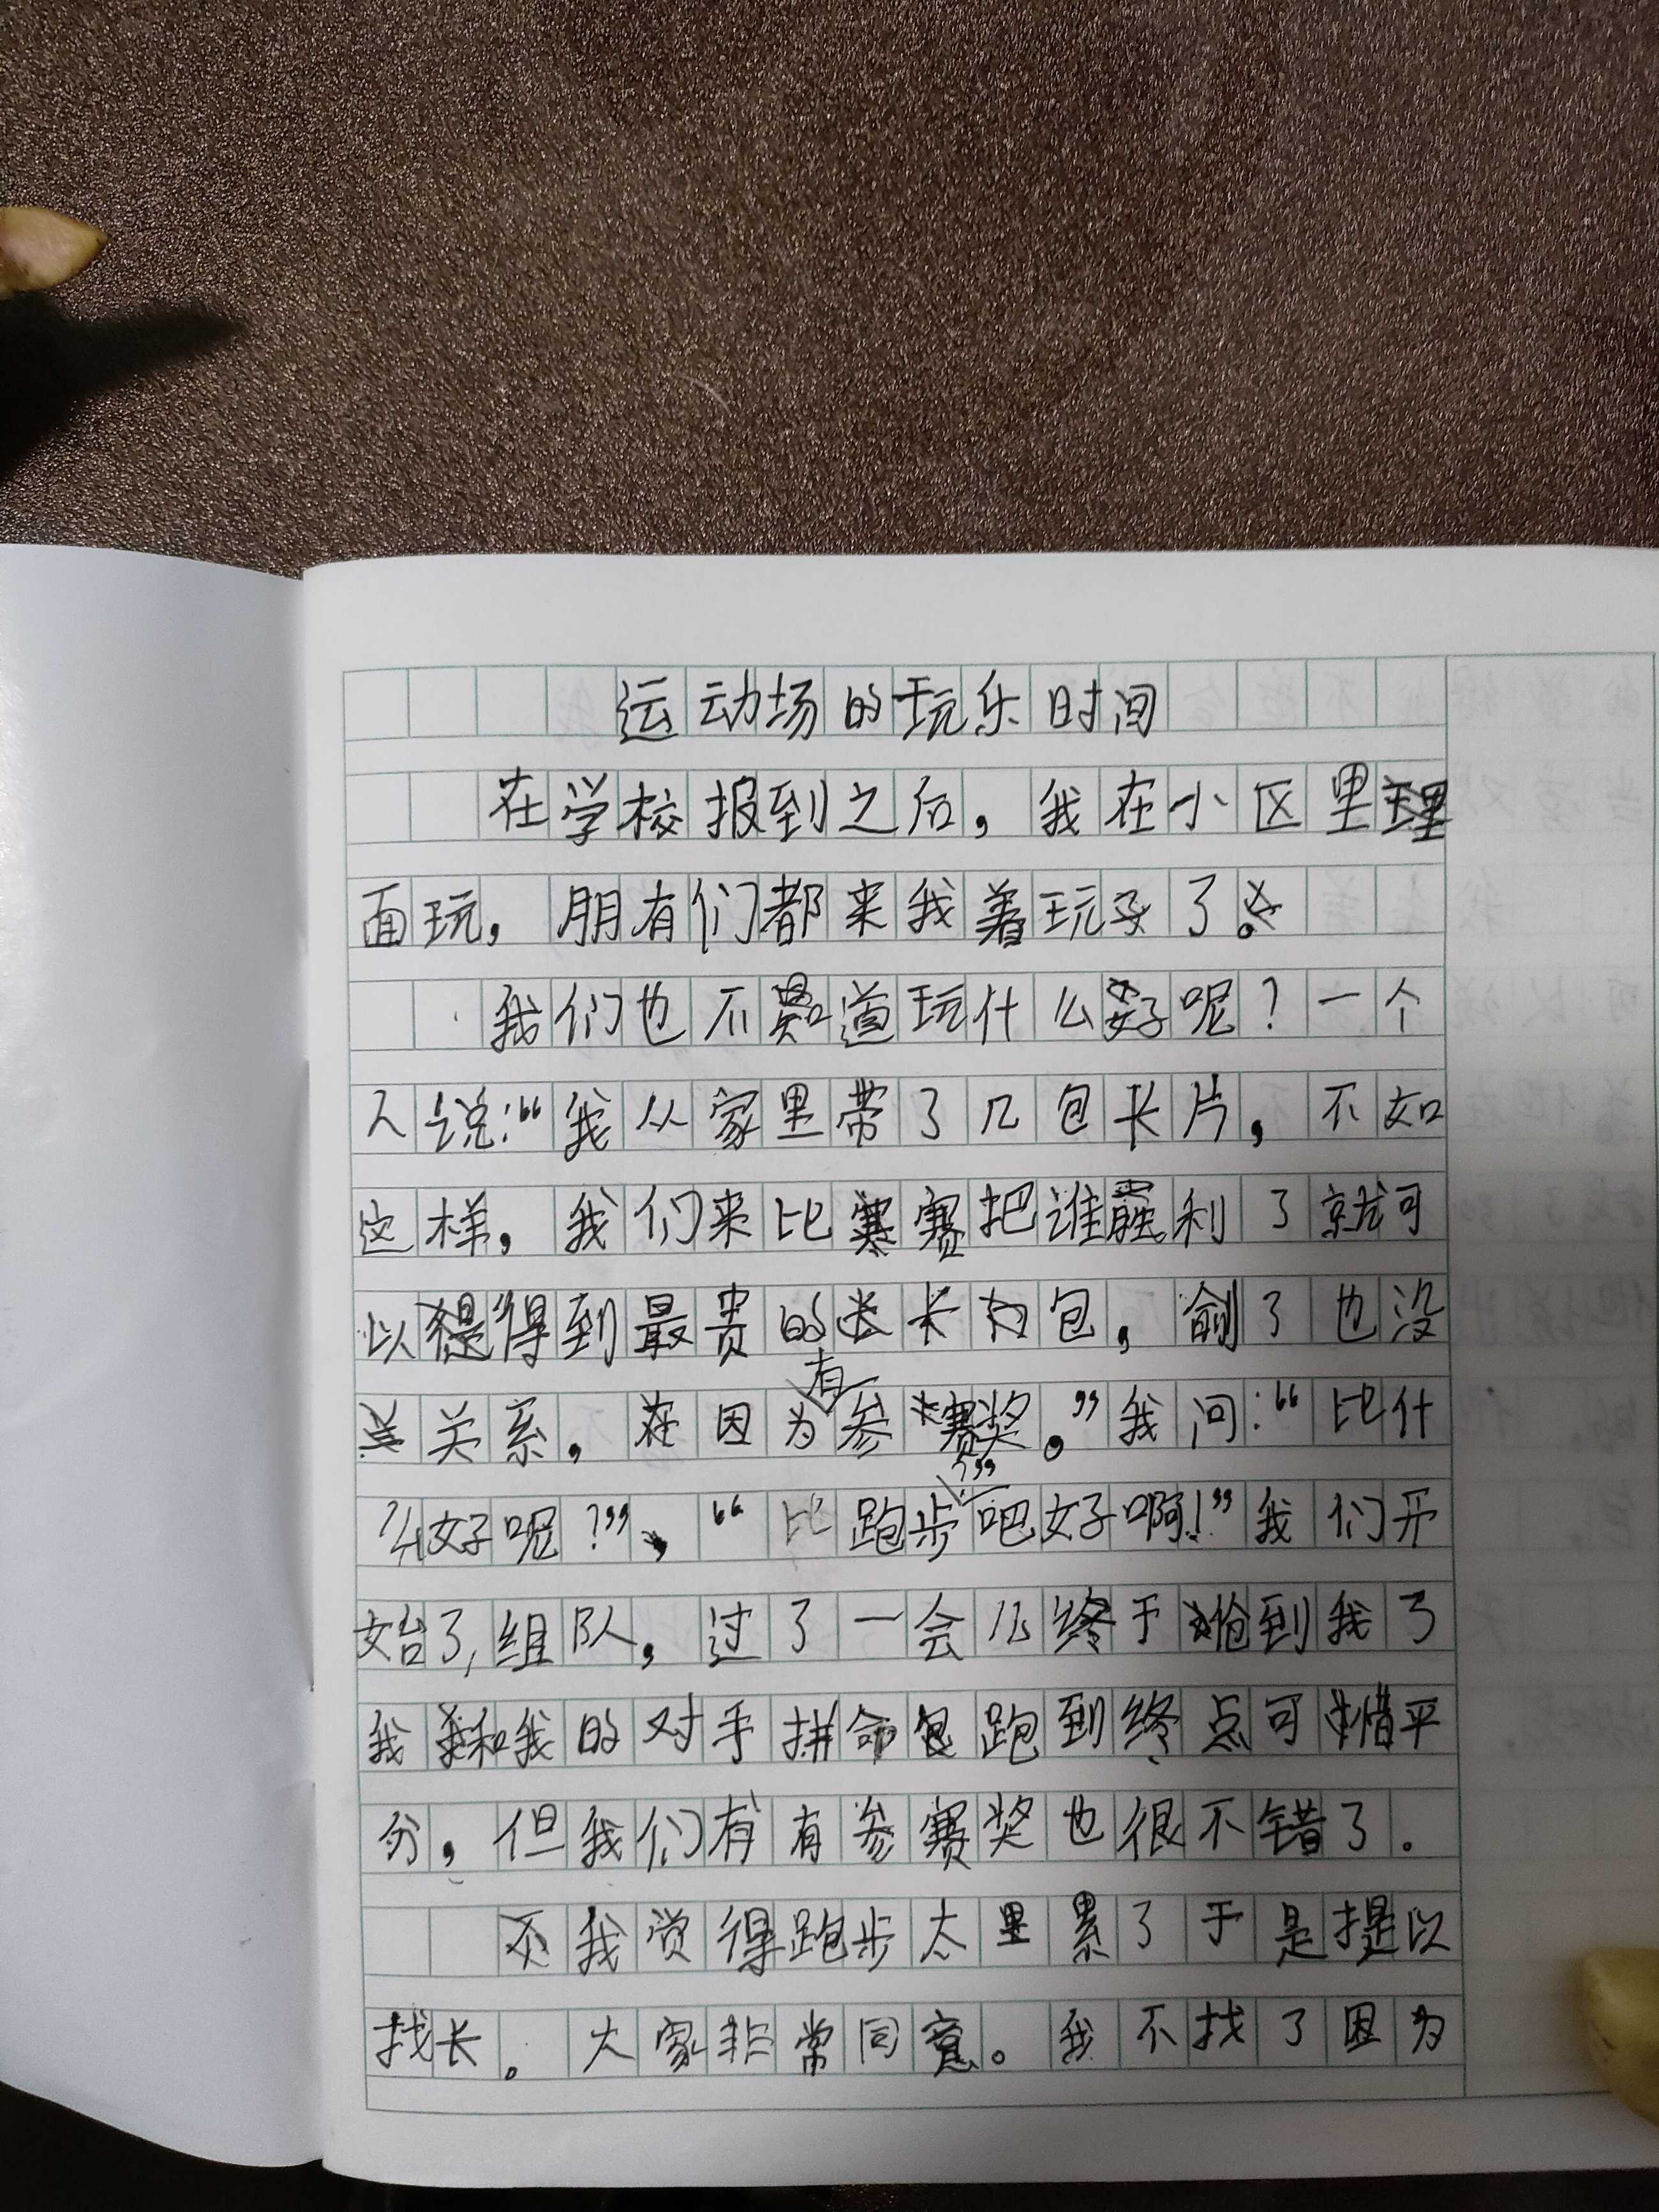 运动场的玩乐时间
在学校报到之后，我在小区里
面玩，朋有们都来我着玩了。
我们也不知道玩什么好呢？一个
人说：“我从家里带了几包长片，不如
这样，我们来比赛把谁利了就可
以得到最贵的长包，了也没
关系，因为有参赛奖。”我问：“比什
么好呢？”“比跑步？”吧好啊！”我们开
始了，组队，过了一会儿终于抢到我了
我和我的对手拼命跑到终点可惜平
分，但我们有有参赛奖也很不错了。
我觉得跑步太累了于是提以
找长。大家非常同意。我不找了因为